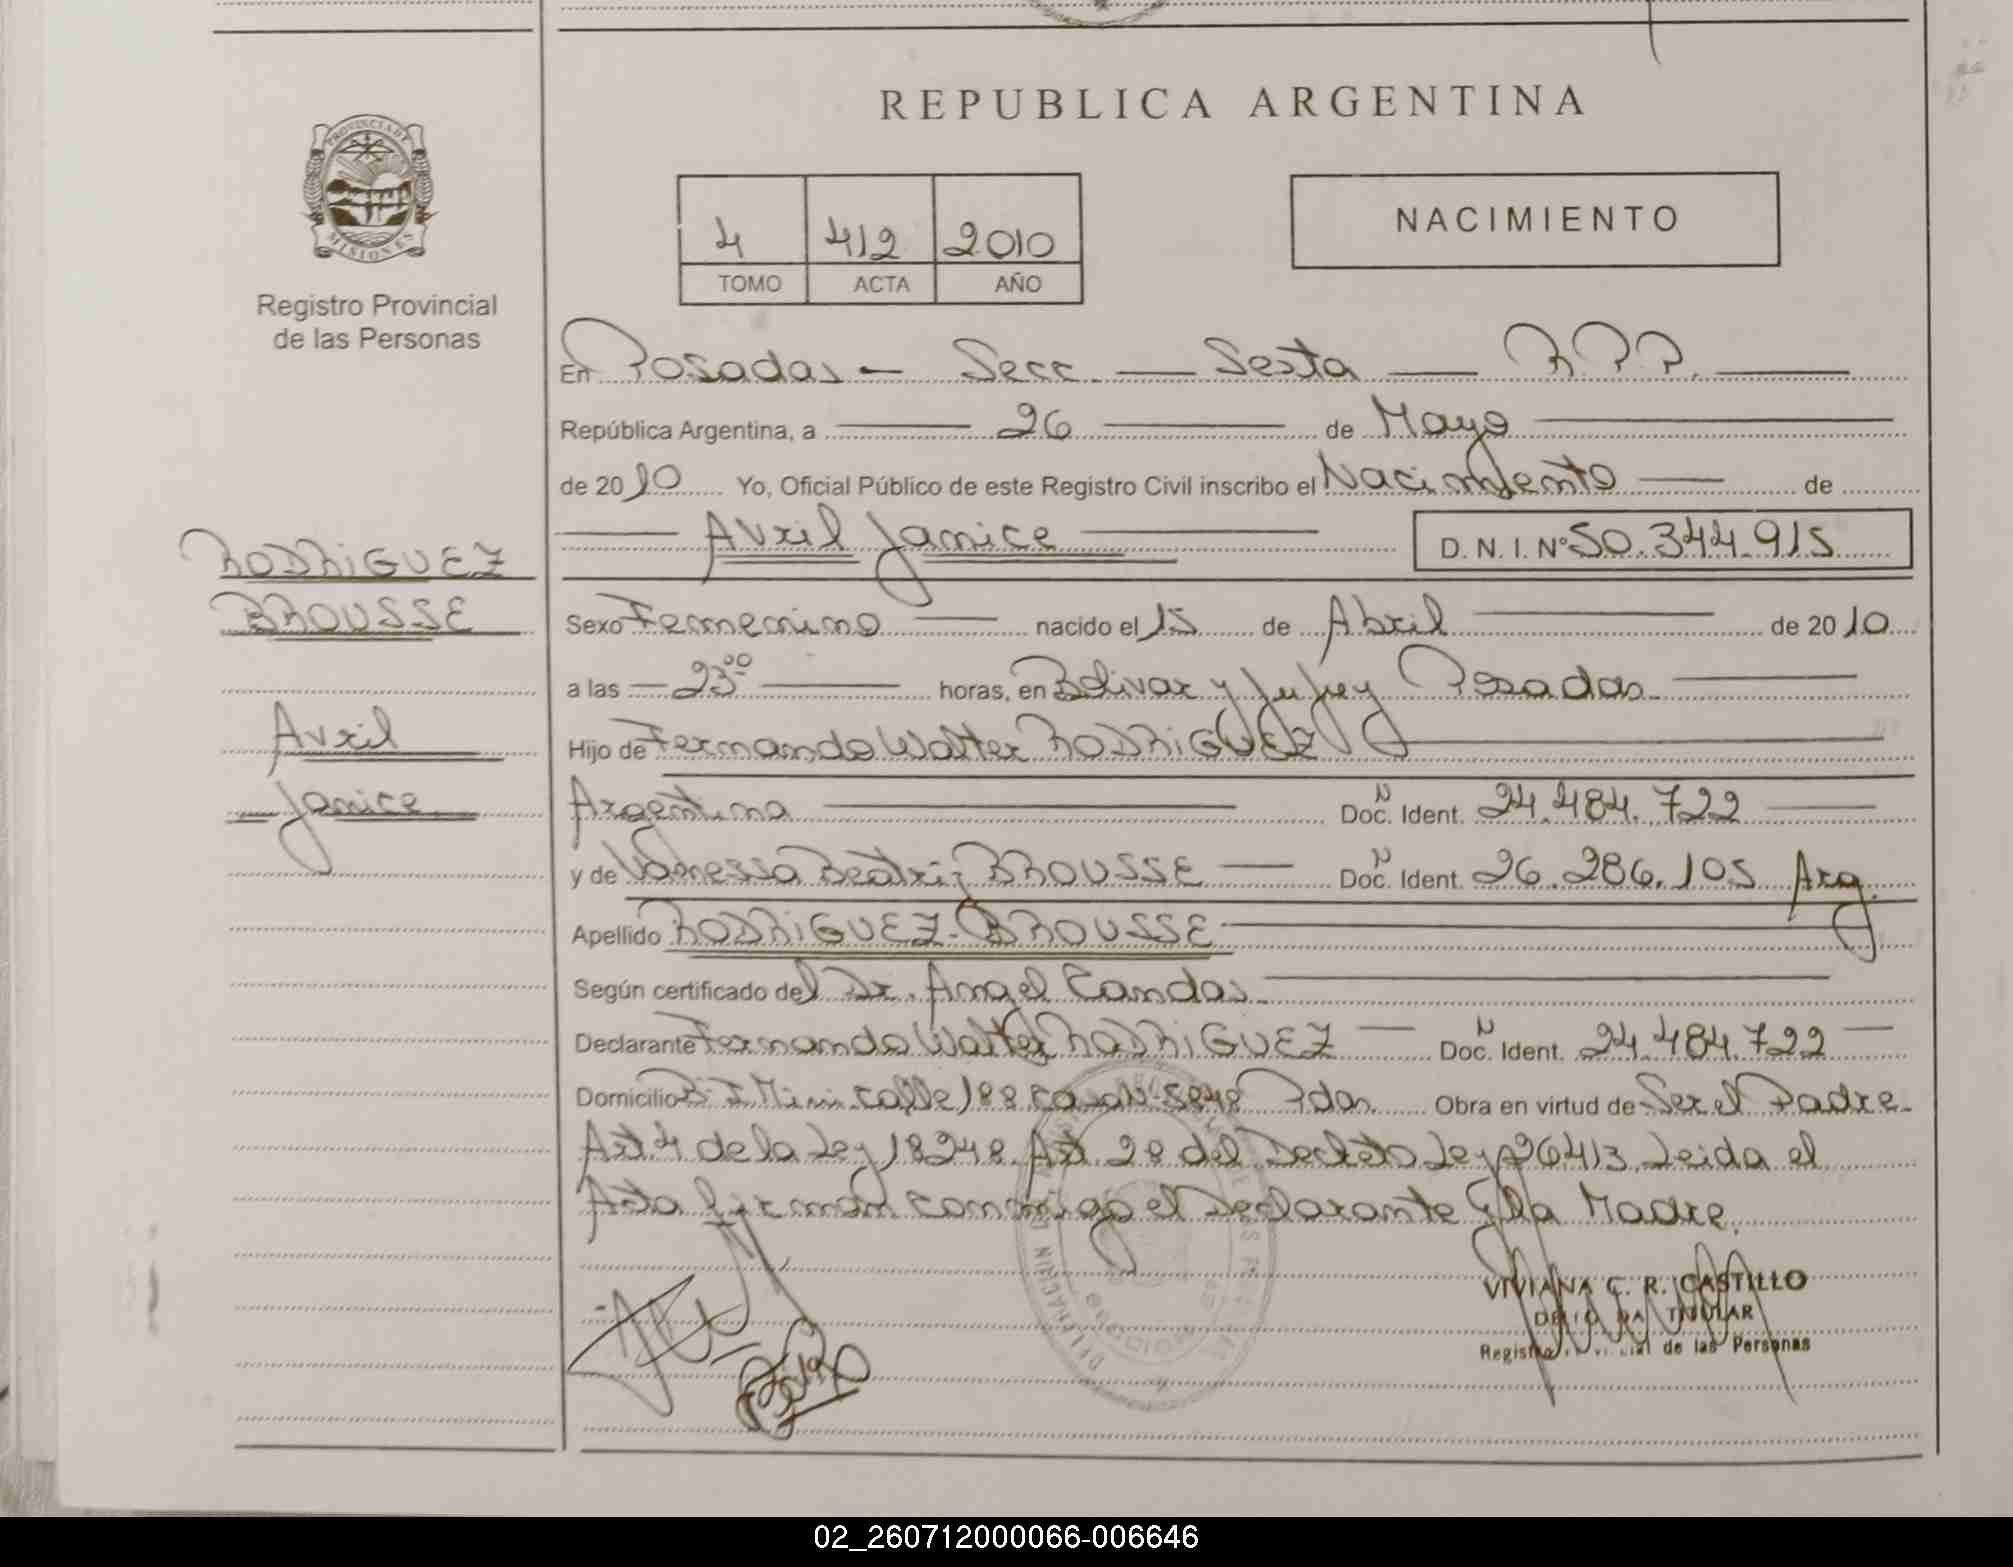 REPUBLICA ARGENTINA
PROVINCIA DE MISIONES
Registro Provincial
de las Personas
4 412 2010
TOMO ACTA AÑO
NACIMIENTO
En Posadas - Secc. Sexta R.P.P.
República Argentina, a 26 de Mayo
de 2010 Yo, Oficial Público de este Registro Civil inscribo el Nacimiento de
Avril Janice D. N. I. Nº 50.344.915
RODRiGUEZ
BROUSSE
Avril
Janice
Sexo Femenino nacido el 15 de Abril de 2010
a las 23 00 horas, en Bolivar y Jujuy Posadas
Hijo de Fernando Walter RODRiGUEZ
Argentina Doc. N Ident. 24.484.722
y de Vanessa Beatriz BROUSSE Doc. N Ident. 26.286.105 Arg.
Apellido RODRiGUEZ - BROUSSE
Según certificado del Dr. Angel Candas
Declarante Fernando Walter RODRiGUEZ Doc. N Ident. 24.484.722
Domicilio Bº I Mini calle 188 casa Nº 5848 Pdas. Obra en virtud de Ser el Padre.
Art. 4 de la Ley 18248. Art. 28 del Decreto Ley 26413. Leida el
Acta firman conmigo el Declarante y la Madre.
VIVIANA C. R. CASTILLO
TITULAR
de las Personas
02_260712000066-006646